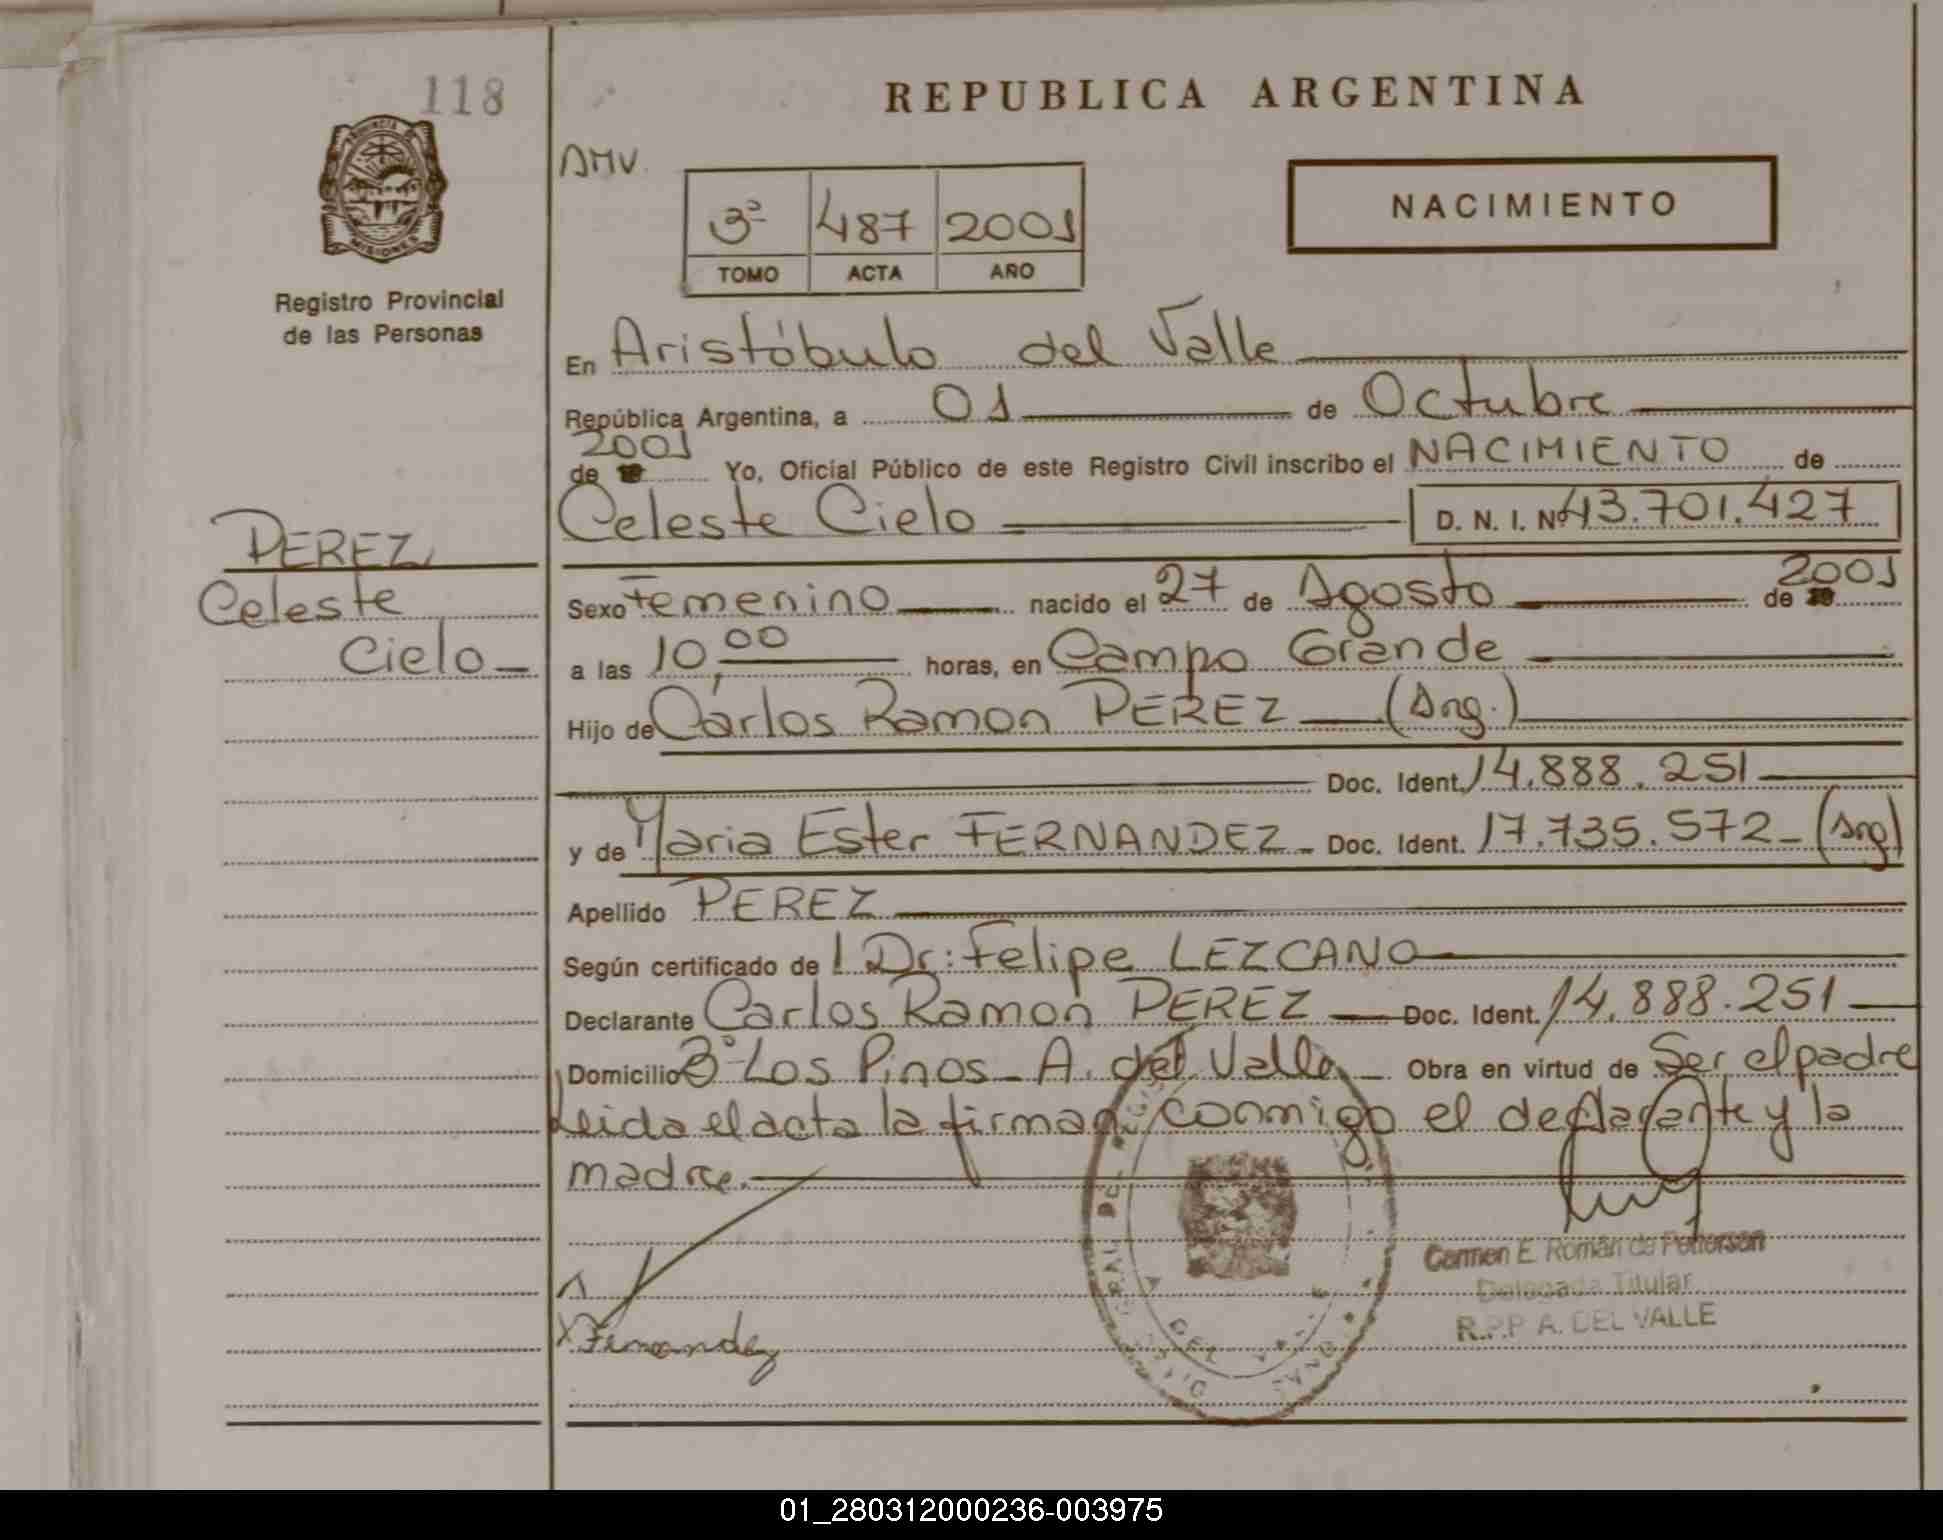 118
REPUBLICA ARGENTINA
AMV.
3º 487 2001
TOMO ACTA AÑO
NACIMIENTO
PROVINCIA DE
MISIONES
Registro Provincial
de las Personas
En Aristóbulo del Valle
República Argentina, a 01 de Octubre
2001
de 19 Yo, Oficial Público de este Registro Civil inscribo el NACIMIENTO de
Celeste Cielo D. N. I. Nº 43.701.427
PEREZ
Celeste
Cielo
Sexo Femenino nacido el 27 de Agosto de 2001
a las 10,00 horas, en Campo Grande
Hijo de Carlos Ramon PEREZ (Arg.)
Doc. Ident. 14.888.251
y de Maria Ester FERNANDEZ Doc. Ident. 17.735.572 (Arg)
Apellido PEREZ
Según certificado de l Dr: Felipe LEZCANO
Declarante Carlos Ramon PEREZ Doc. Ident. 14.888.251
Domicilio Bº Los Pinos - A. del Valle Obra en virtud de Ser el padre
Leida el acta la firman conmigo el declarante y la
madre.
Carmen E. Román de Petterson
Delegada Titular
R.P.P A. DEL VALLE
X Fernandez
A DEL VALLE
01_280312000236-003975